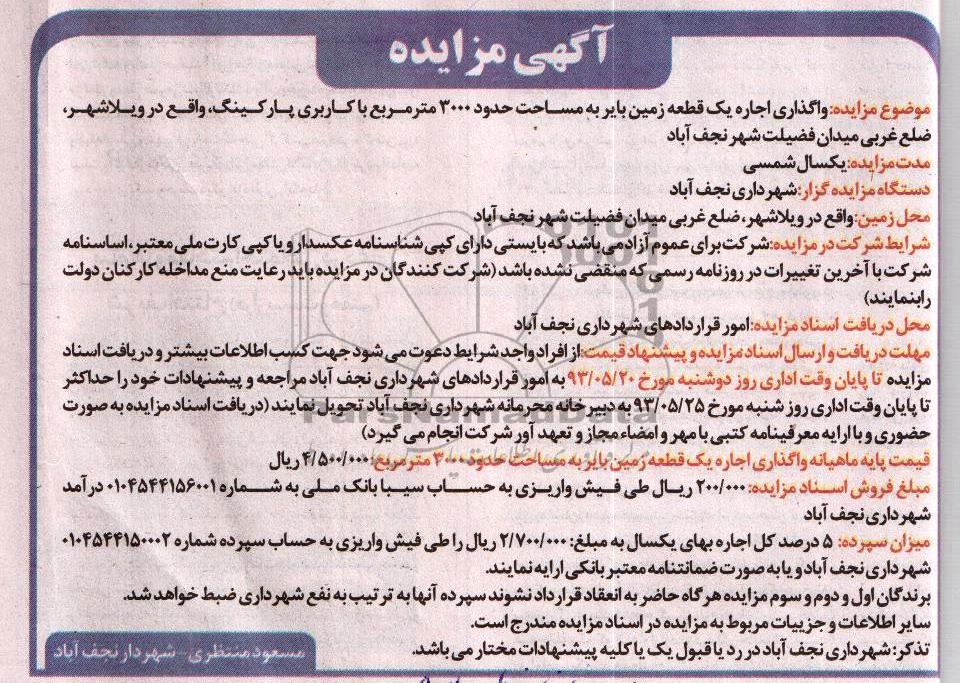 آگهی مزایده
موضوع مزایده: واگذاری اجاره یک قطعه زمین بایر به مساحت حدود ۳۰۰۰ مترمربع با کاربری پارکینگ، واقع در ویلاشهر،
ضلع غربی میدان فضیلت شهر نجف آباد
مدت مزایده: یکسال شمسی
دستگاه مزایده گزار: شهرداری نجف آباد
محل زمین: واقع در ویلاشهر، ضلع غربی میدان فضیلت شهر نجف آباد
شرایط شرکت در مزایده: شرکت برای عموم آزاد می باشد که بایستی دارای کپی شناسنامه عکسدار و یا کپی کارت ملی معتبر، اساسنامه
شرکت با آخرین تغییرات در روزنامه رسمی که منقضی نشده باشد (شرکت کنندگان در مزایده باید رعایت منع مداخله کارکنان دولت
را بنمایند)
محل دریافت اسناد مزایده: امور قراردادهای شهرداری نجف آباد
مهلت دریافت و ارسال اسناد مزایده و پیشنهاد قیمت: از افراد واجد شرایط دعوت می شود جهت کسب اطلاعات بیشتر و دریافت اسناد
مزایده تا پایان وقت اداری روز دوشنبه مورخ ۹۳/۰۵/۲۰ به امور قراردادهای شهرداری نجف آباد مراجعه و پیشنهادات خود را حداکثر
تا پایان وقت اداری روز شنبه مورخ ۹۳/۰۵/۲۵ به دبیرخانه محرمانه شهرداری نجف آباد تحویل نمایند (دریافت اسناد مزایده به صورت
حضوری و با ارایه معرفینامه کتبی با مهر و امضاء مجاز و تعهد آور شرکت انجام می گیرد)
قیمت پایه ماهیانه واگذاری اجاره یک قطعه زمین بایر به مساحت حدود ۳۰۰۰ مترمربع: ۴/۵۰۰/۰۰۰ ریال
مبلغ فروش اسناد مزایده: ۲۰۰/۰۰۰ ریال طی فیش واریزی به حساب سیبا بانک ملی به شماره ۰۱۰۴۵۴۴۱۵۶۰۰۱ درآمد
شهرداری نجف آباد
میزان سپرده: ۵ درصد کل اجاره بهای یکسال به مبلغ: ۲/۷۰۰/۰۰۰ ریال را طی فیش واریزی به حساب سپرده شماره ۰۱۰۴۵۴۴۱۵۰۰۰۲
شهرداری نجف آباد و یا به صورت ضمانتنامه معتبر بانکی ارایه نمایند.
برندگان اول و دوم و سوم مزایده هرگاه حاضر به انعقاد قرارداد نشوند سپرده آنها به ترتیب به نفع شهرداری ضبط خواهد شد.
سایر اطلاعات و جزییات مربوط به مزایده در اسناد مزایده مندرج است.
تذکر: شهرداری نجف آباد در رد یا قبول یک یا کلیه پیشنهادات مختار می باشد.
مسعود منتظری - شهردار نجف آباد
ParsNamadData